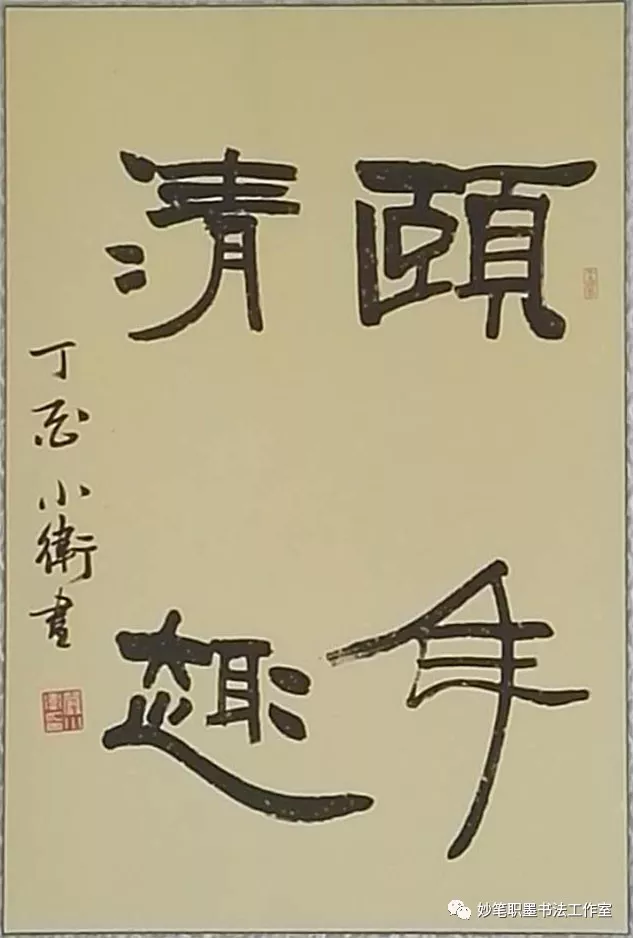 頤年
清趣
丁酉小衛書
妙笔职墨书法工作室